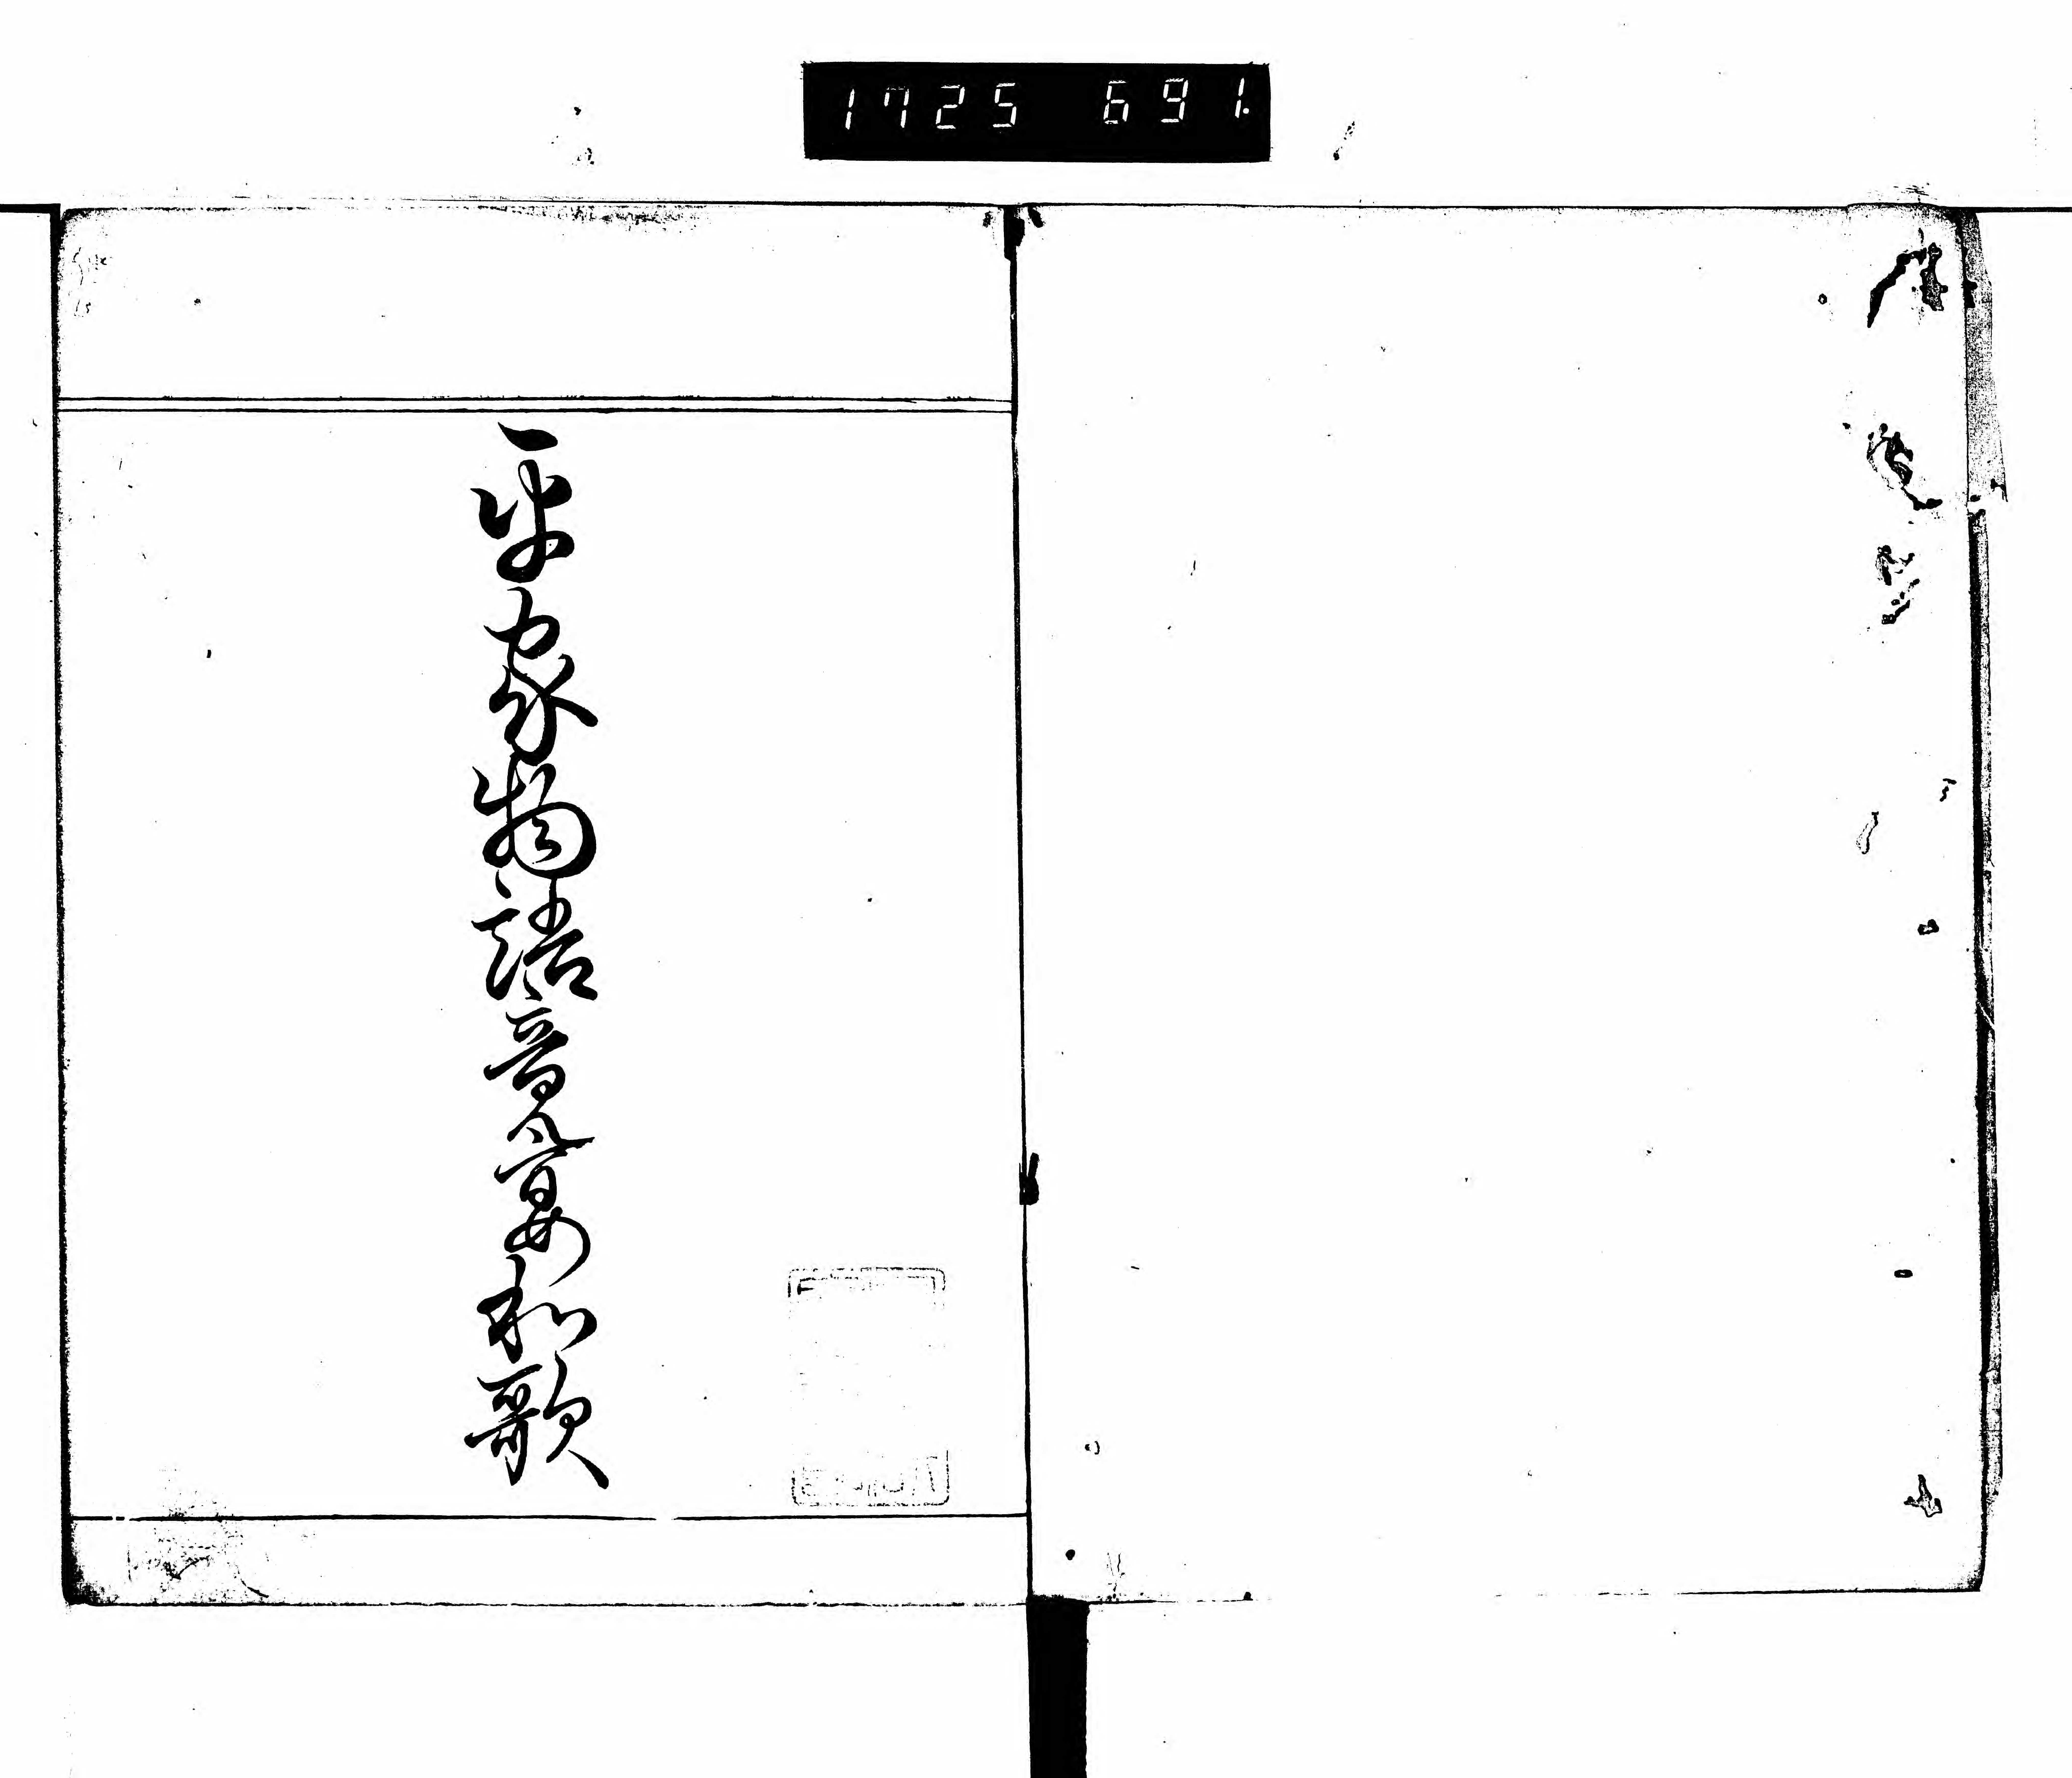 1725 691.
平家物語竟宴和歌